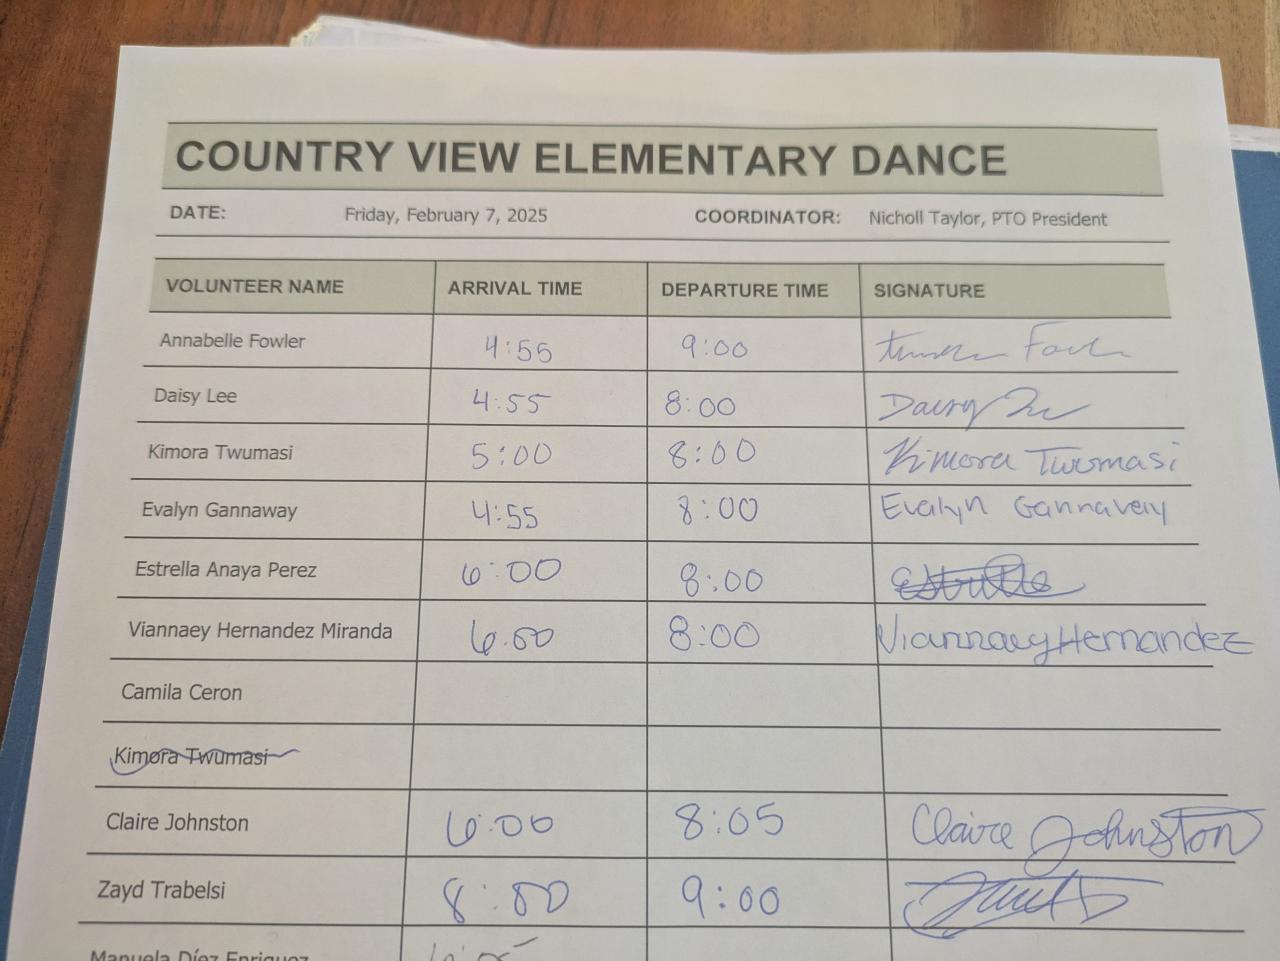 COUNTRY VIEW ELEMENTARY DANCE
DATE: Friday, February 7, 2025 COORDINATOR: Nicholl Taylor, PTO President
VOLUNTEER NAME ARRIVAL TIME DEPARTURE TIME SIGNATURE
Annabelle Fowler 4:55 9:00
Daisy Lee 4:55 8:00 Daisy Lee
Kimora Twumasi 5:00 8:00 Kimora Twumasi
Evalyn Gannaway 4:55 8:00 Evalyn Gannaway
Estrella Anaya Perez 6:00 8:00
Viannaey Hernandez Miranda 6:00 8:00 Viannaey Hernandez
Camila Ceron
Kimora Twumasi
Claire Johnston 6:00 8:05 Claire Johnston
Zayd Trabelsi 8:00 9:00
Manuela Díez Enriquez